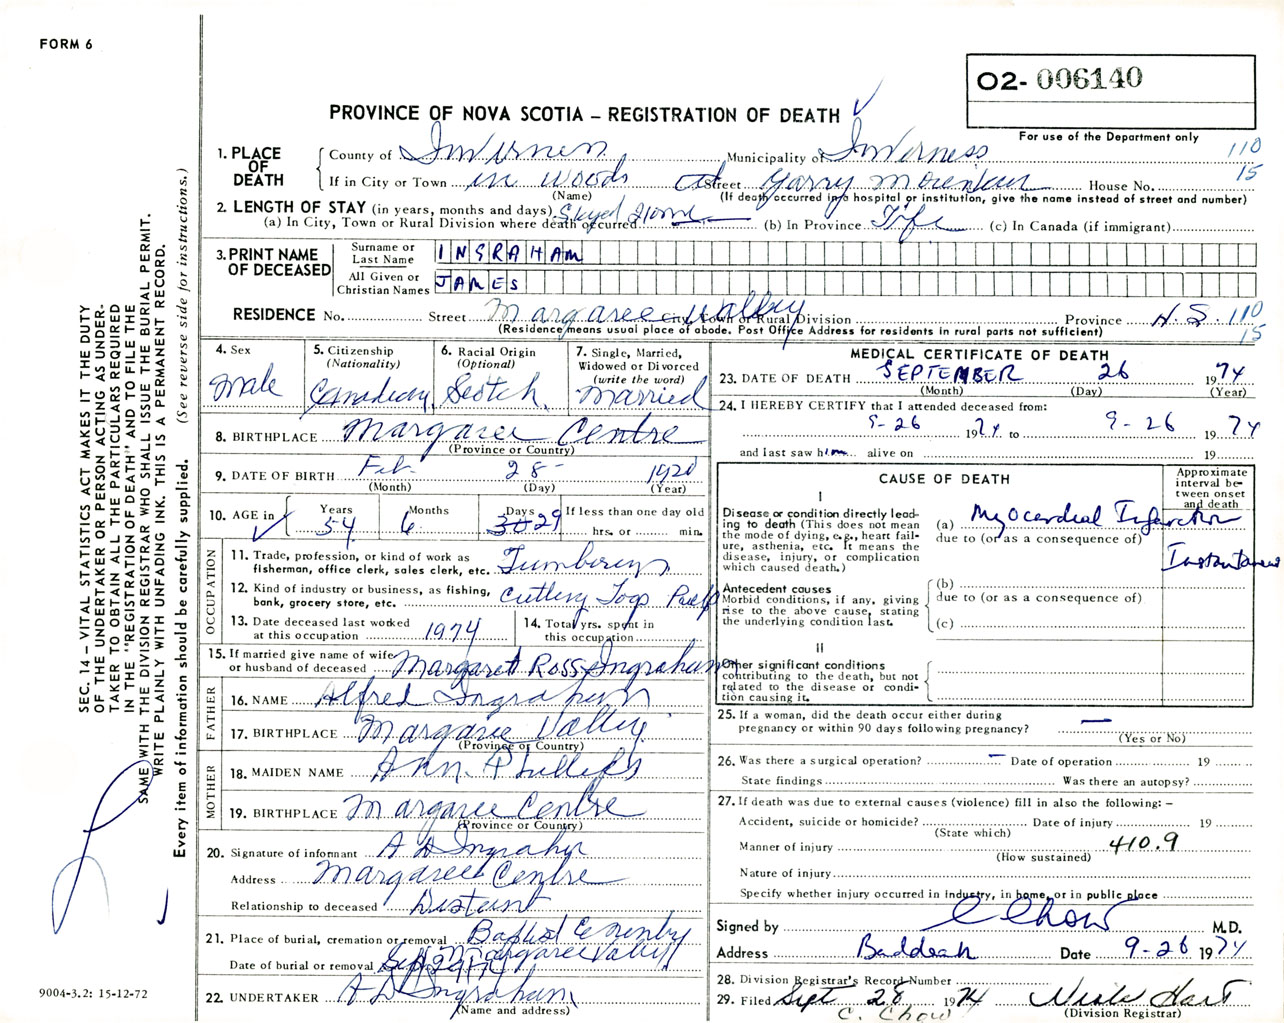 FORM 6
O2- 006140
PROVINCE OF NOVA SCOTIA – REGISTRATION OF DEATH
For use of the Department only
1. PLACE OF DEATH
County of Inverness Municipality of Inverness 110
If in City or Town in woods Street Garry House No. 15
(Name) (If death occurred in a hospital or institution, give the name instead of street and number)
2. LENGTH OF STAY (in years, months and days)
(a) In City, Town or Rural Division where death occurred (b) In Province Life (c) In Canada (if immigrant)
3. PRINT NAME OF DECEASED
Surname or Last Name INGRAHAM
All Given or Christian Names JAMES
RESIDENCE No. Street Margaree Valley City, Town or Rural Division Province N.S 110
(Residence means usual place of abode. Post Office Address for residents in rural parts not sufficient) 15
4. Sex Male
5. Citizenship (Nationality) Canadian
6. Racial Origin (Optional) Scotch
7. Single, Married, Widowed or Divorced (write the word) Married
8. BIRTHPLACE Margaree Centre
(Province or Country)
9. DATE OF BIRTH Feb. 28 1920
(Month) (Day) (Year)
10. AGE in Years Months Days If less than one day old
54 6 29 hrs. or min.
OCCUPATION
11. Trade, profession, or kind of work as fisherman, office clerk, sales clerk, etc.
12. Kind of industry or business, as fishing, bank, grocery store, etc. Cutting Logs Pulp
13. Date deceased last worked at this occupation 1974
14. Total yrs. spent in this occupation
15. If married give name of wife or husband of deceased Margaret Ross Ingraham
FATHER
16. NAME Alfred Ingraham
17. BIRTHPLACE Margaree Valley
(Province or Country)
MOTHER
18. MAIDEN NAME Ann Phillips
19. BIRTHPLACE Margaree Centre
(Province or Country)
20. Signature of informant A D Ingraham
Address Margaree Centre
Relationship to deceased
21. Place of burial, cremation or removal Baptist Margaree Valley
Date of burial or removal
22. UNDERTAKER A D Ingraham
(Name and address)
MEDICAL CERTIFICATE OF DEATH
23. DATE OF DEATH SEPTEMBER 26 1974
(Month) (Day) (Year)
24. I HEREBY CERTIFY that I attended deceased from:
9-26 1974 to 9-26 1974
and last saw him alive on 19
CAUSE OF DEATH
Approximate interval between onset and death
I
Disease or condition directly leading to death (This does not mean the mode of dying, e.g., heart failure, asthenia, etc. It means the disease, injury, or complication which caused death.)
(a) Myocardial Infarction
due to (or as a consequence of)
Instantaneous
Antecedent causes
Morbid conditions, if any, giving rise to the above cause, stating the underlying condition last.
(b)
due to (or as a consequence of)
(c)
II
Other significant conditions contributing to the death, but not related to the disease or condition causing it.
25. If a woman, did the death occur either during pregnancy or within 90 days following pregnancy? —
(Yes or No)
26. Was there a surgical operation? – Date of operation 19
State findings Was there an autopsy?
27. If death was due to external causes (violence) fill in also the following: –
Accident, suicide or homicide? Date of injury 19
(State which)
Manner of injury 410.9
(How sustained)
Nature of injury
Specify whether injury occurred in industry, in home, or in public place
Signed by C Chow M.D.
Address Baddeck Date 9-26 1974
28. Division Registrar's Record Number
29. Filed Sept 28 1974 Hart
C. Chow (Division Registrar)
SEC. 14–VITAL STATISTICS ACT MAKES IT THE DUTY
OF THE UNDERTAKER OR PERSON ACTING AS UNDER-
TAKER TO OBTAIN ALL THE PARTICULARS REQUIRED
IN THE "REGISTRATION OF DEATH" AND TO FILE THE
SAME WITH THE DIVISION REGISTRAR WHO SHALL ISSUE THE BURIAL PERMIT.
WRITE PLAINLY WITH UNFADING INK. THIS IS A PERMANENT RECORD.
Every item of information should be carefully supplied. (See reverse side for instructions.)
9004-3.2: 15-12-72